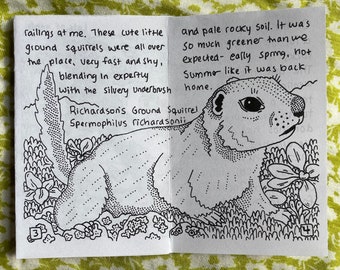 railings at me. These cute little
ground squirrels were all over
the place, very fast and shy,
blending in expertly
with the silvery underbrush
Richardson's Ground Squirrel
Spermophilus richardsonii
3
and pale rocky soil. It was
so much greener than we
expected - early spring, not
Summer like it was back
home.
4